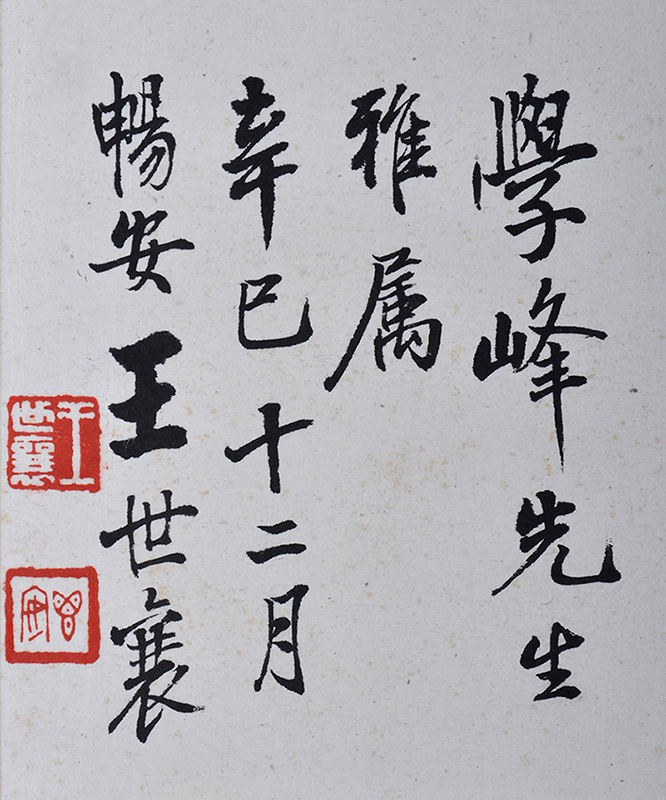 學峰先生
雅属
辛巳十二月
暢安王世襄
王世襄